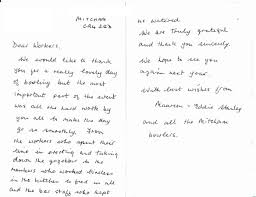 MITCHAM
CR4 2E3
Dear Workers,
We would like to thank
you for a really lovely day
of bowling but the most
important part of the event
was all the hard work by
you all to make the day
go so smoothly. From
the workers who spent their
time in erecting and taking
down the gazebos to the
members who worked tirelessly
in the kitchen to feed us all
and the bar staff who kept
us watered.
We are truly grateful
and thank you sincerely.
We hope to see you
again next year.
With best wishes from
Maureen + Eddie Stanley
and all the Mitcham
bowlers.